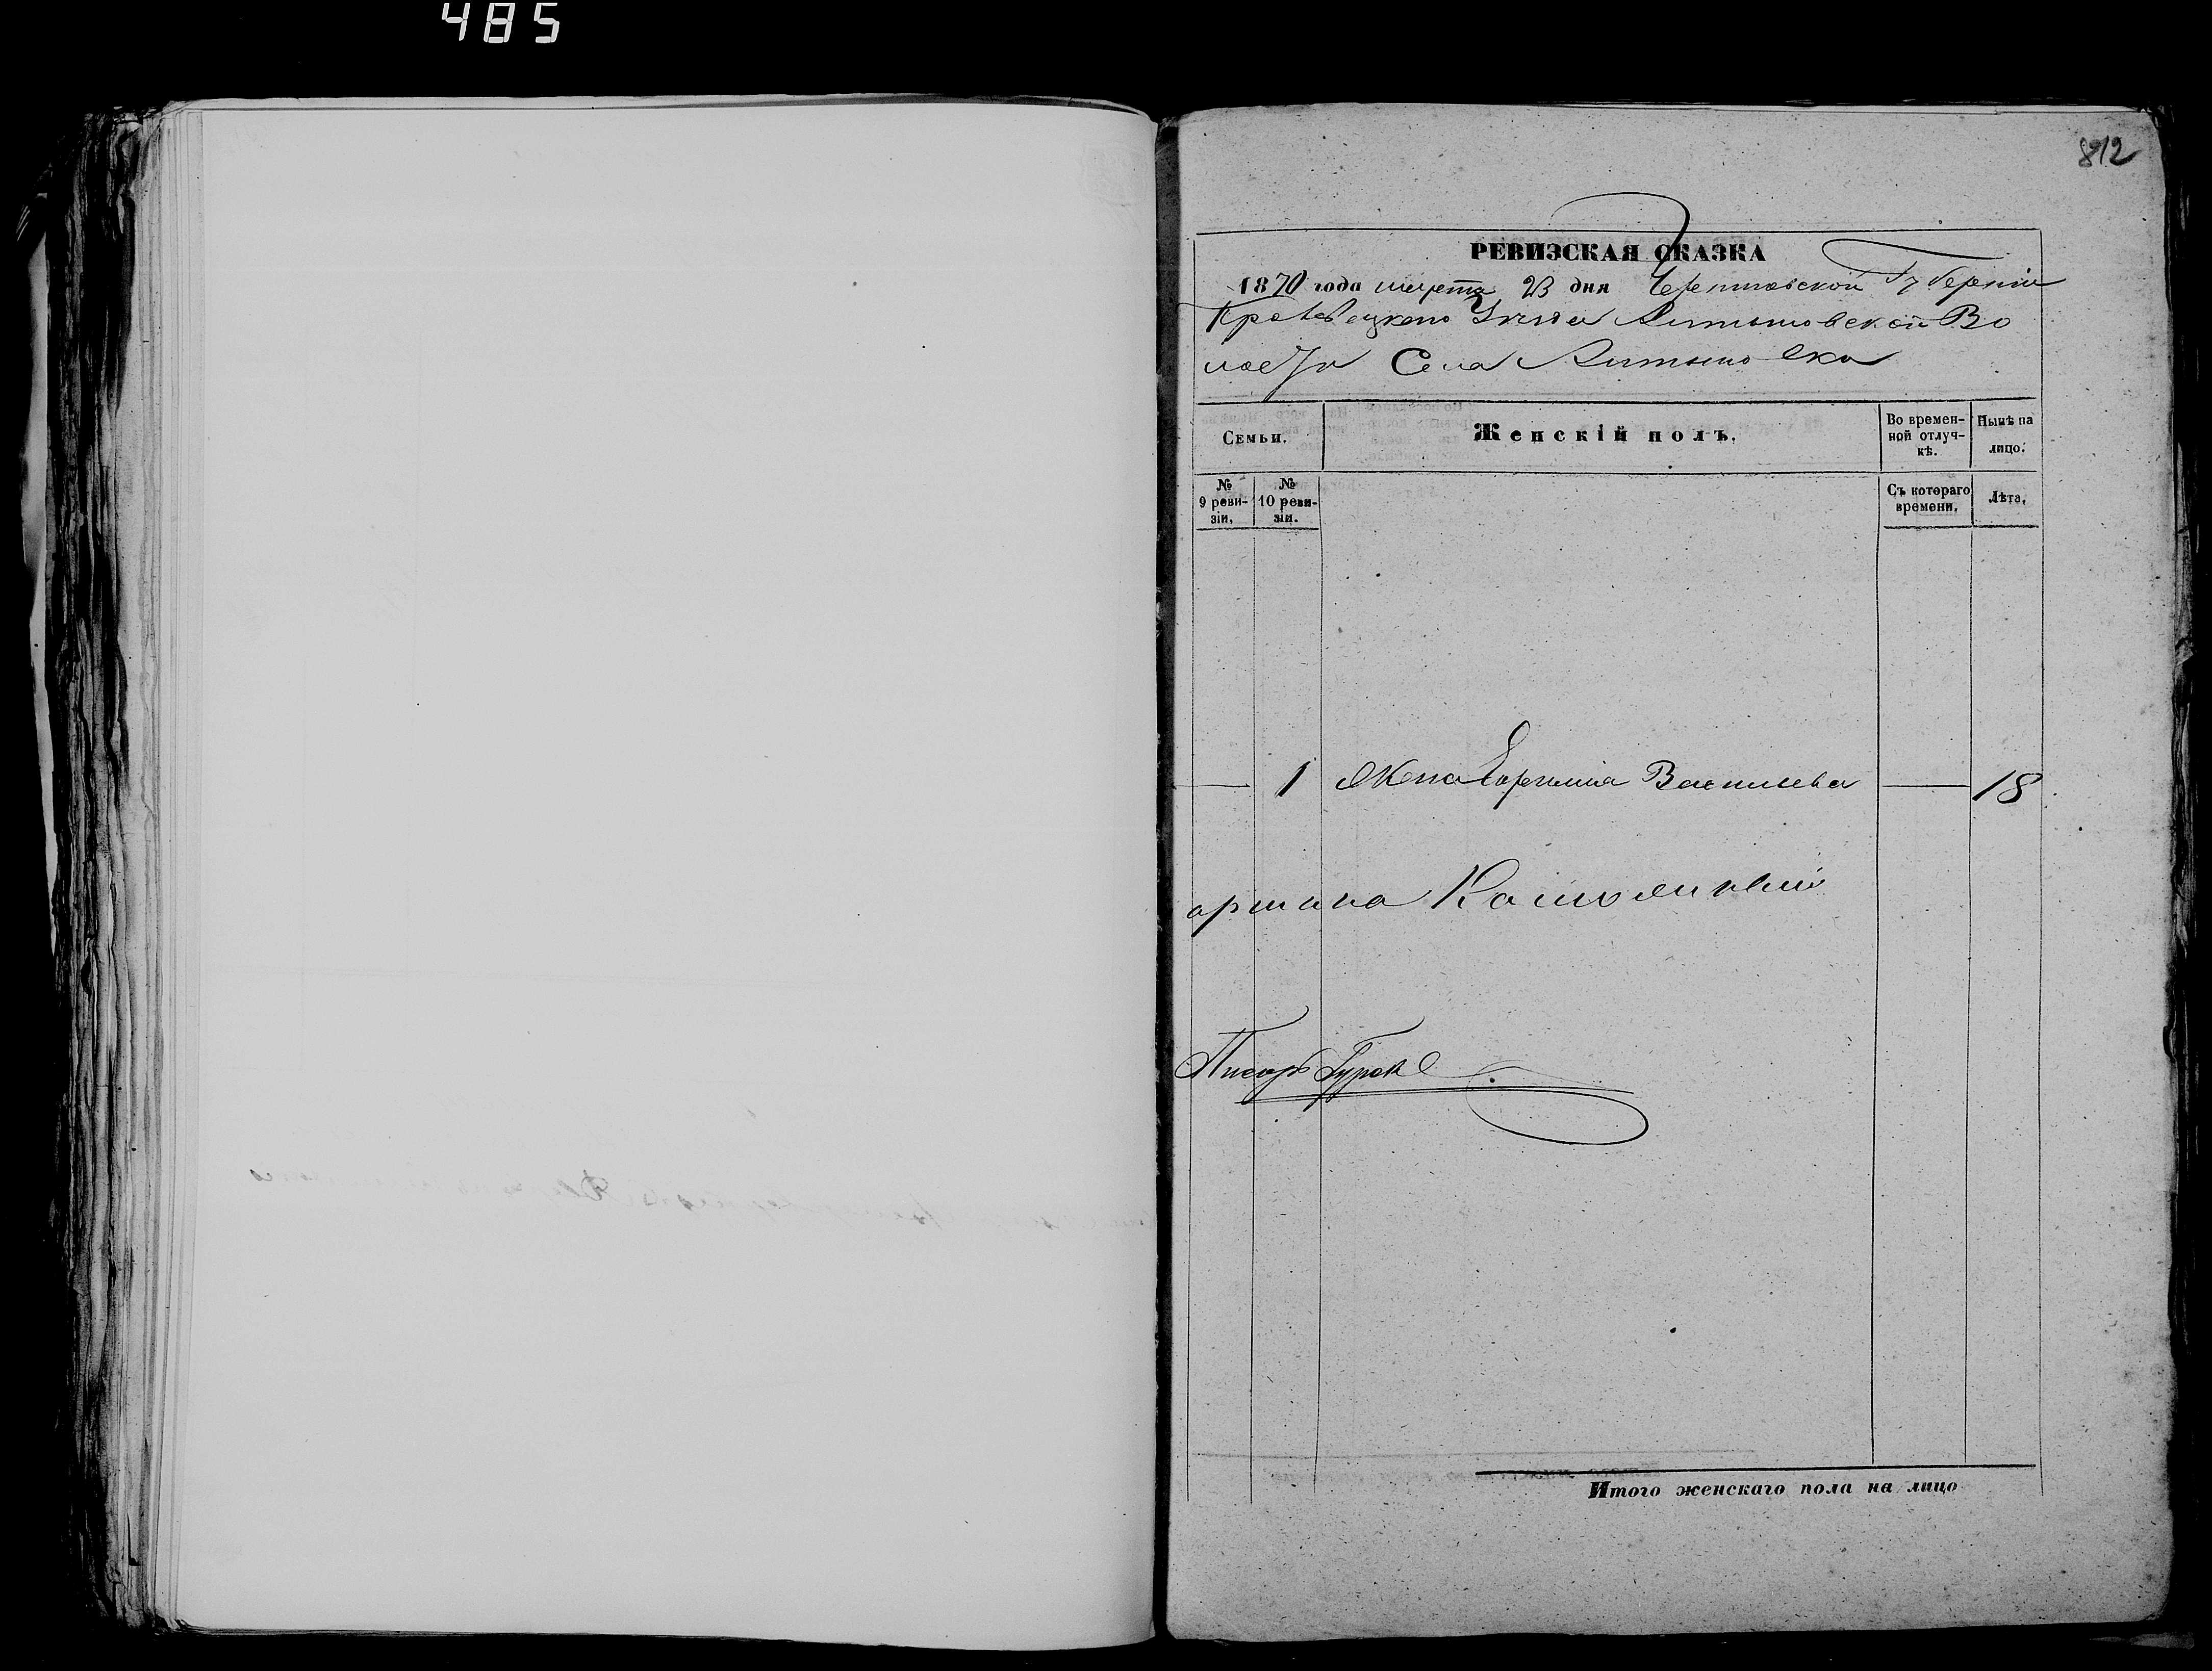 485
812
РЕВИЗСКАЯ СКАЗКА
1870 года марта 23 дня Черниговской Губерніи
Кролевецкаго Уезда Алтыновской Во
лости Села Алтыновка
Семьи.
Женскій полъ.
Во времен-
ной отлуч-
кѣ.
Нынѣ на
лицо.
№
9 реви-
зіи.
№
10 реви-
зіи.
Съ котораго
времени.
Лѣта.
— 1 Жена Евфимія Васильева — 18
аршина
Писарь Гурок
Итого женскаго пола на лицо